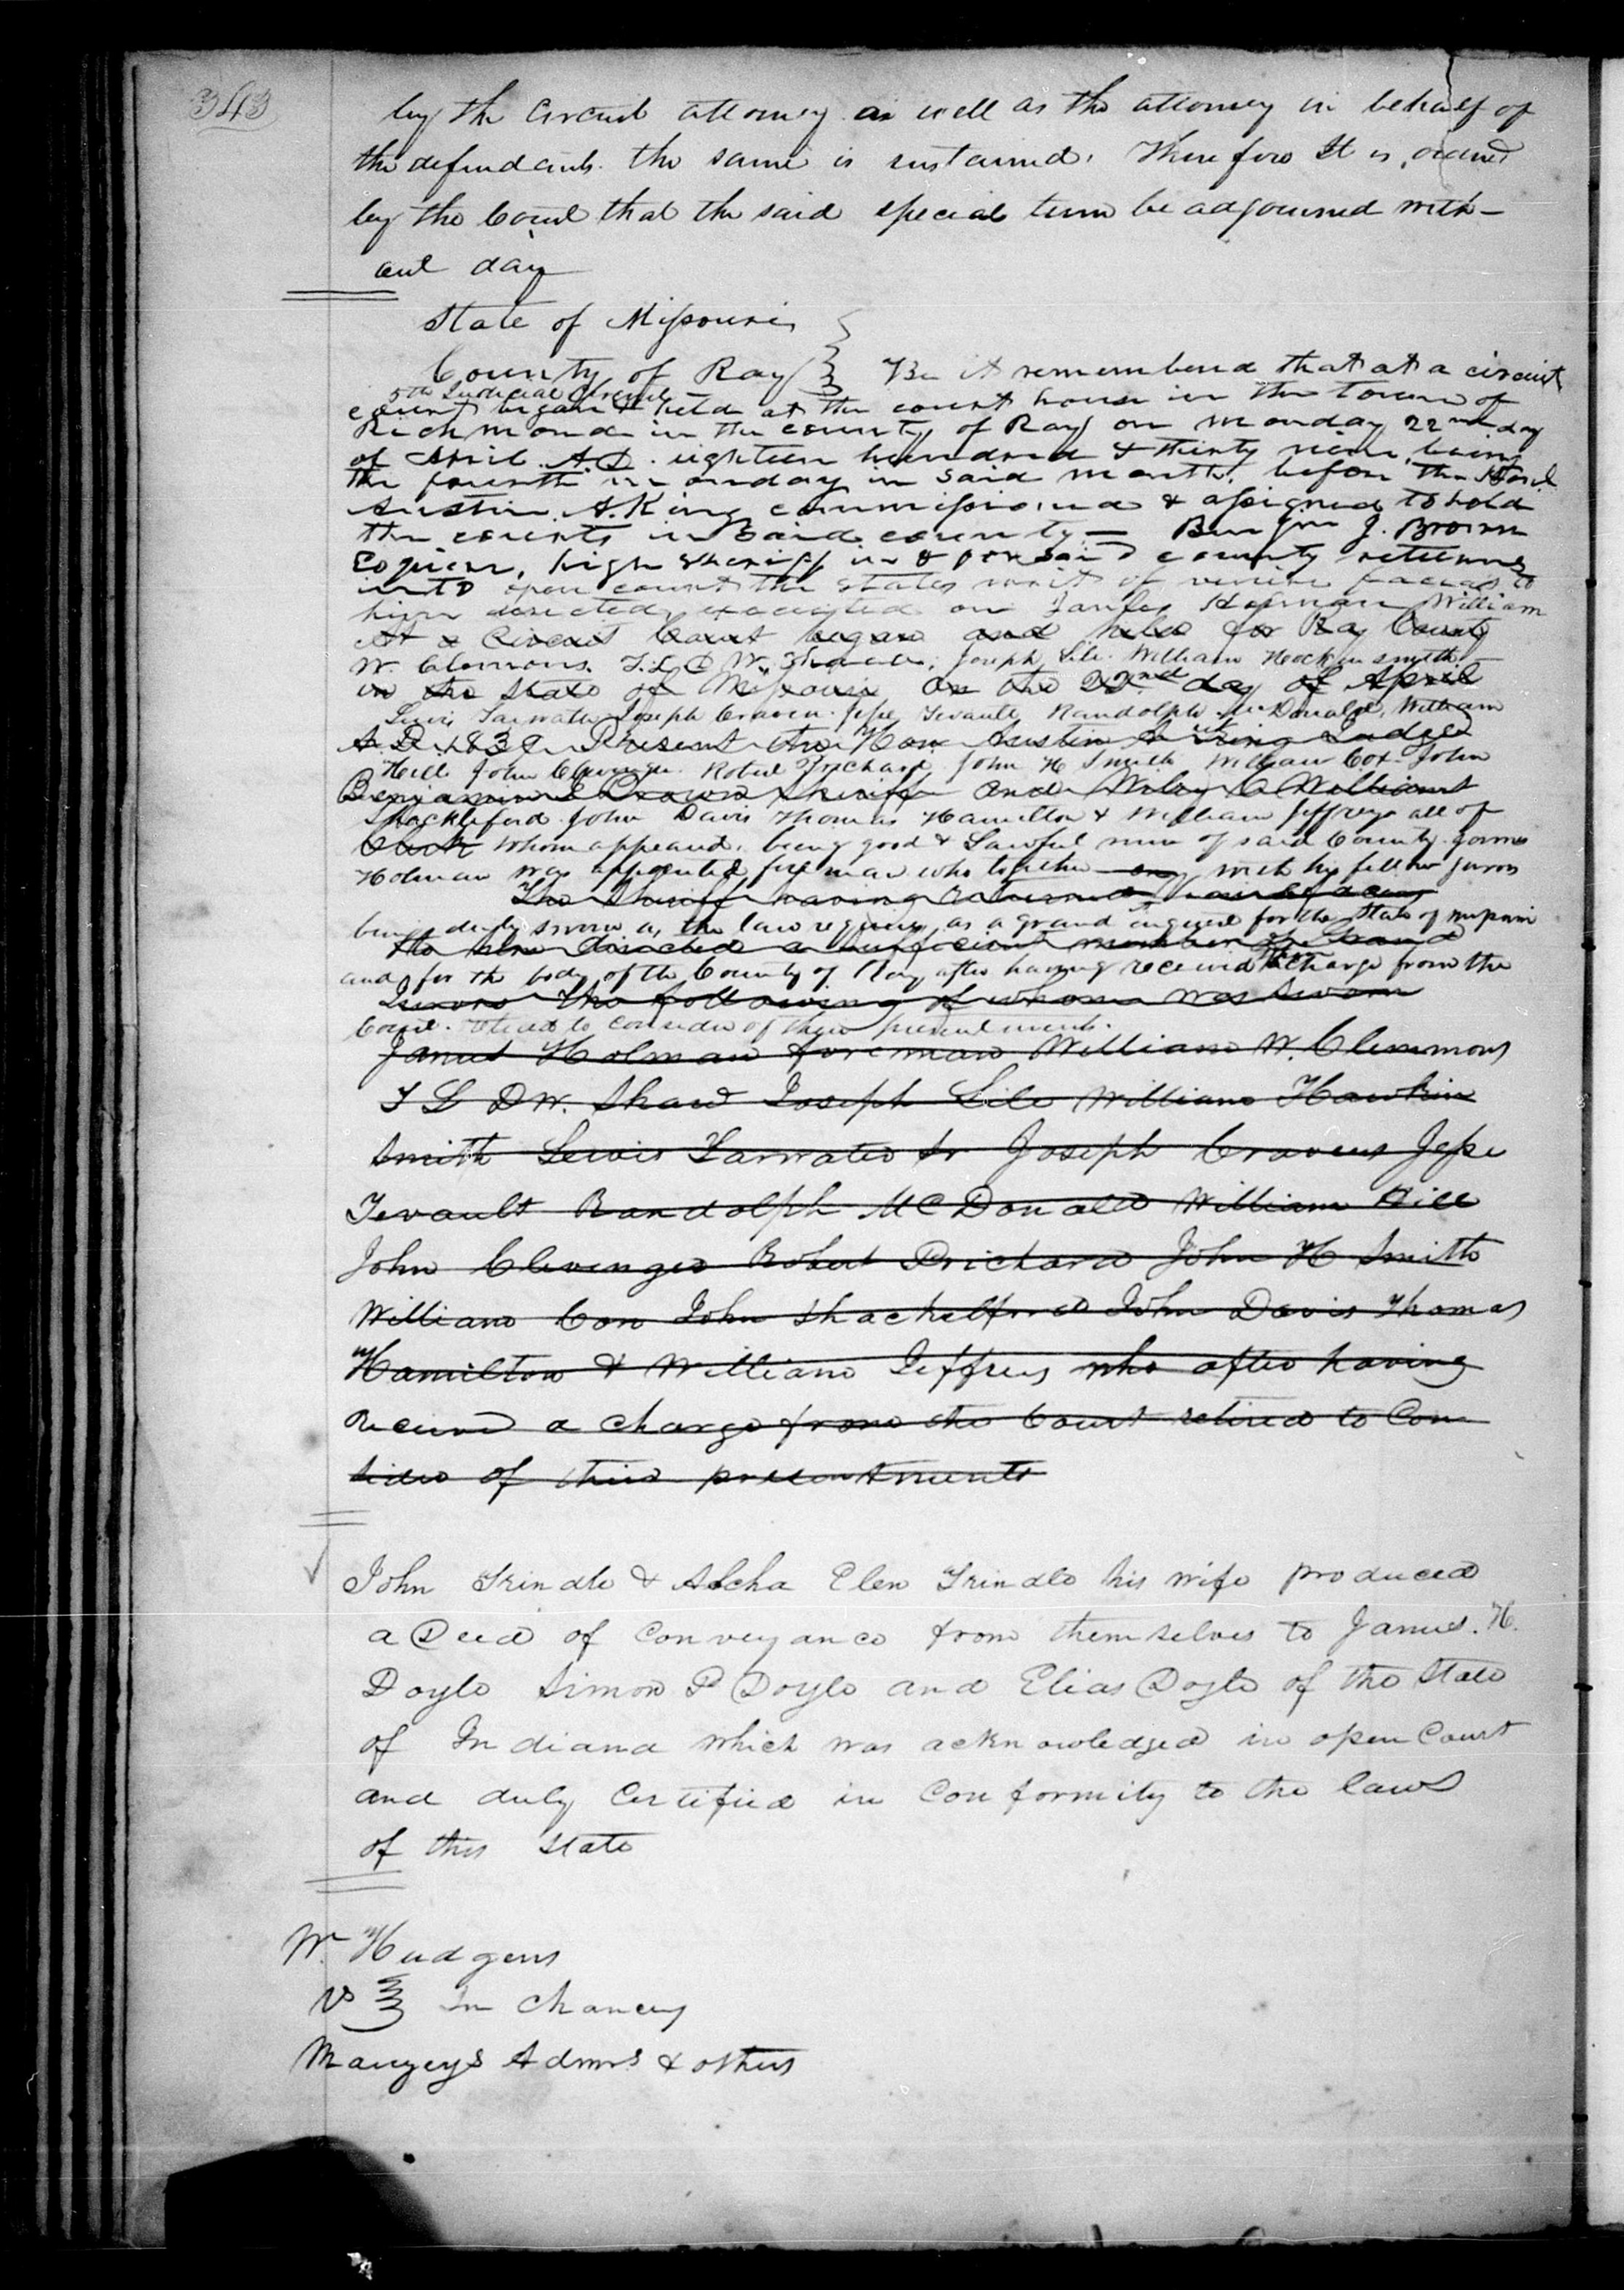 343
by the Circuit attorney as well as the attorney in behalf of
the defendants. the same is sustained. Therefore It is, ordered
by the Court that the said special term be adjourned with-
out day
State of Missouri
County of Ray Be it remembered that at a circuit
5th Judicial Circuit
court began & held at the court house in the town of
Richmond in the county of Ray on monday 22nd day
of April A.D. eighteen hundred & thirty nine, being
the fourth monday in said month, before the Honl
Austin A. King commissioned & assigned to hold
the courts in said county — Benjmn J. Brown
Esquire, high sheriff in & for said county returns
into open court the states writ of venire facias to
him directed, executed on James Holman William
At a Circuit Court began and held for Ray County
W. Clemons. T. L D W. Shaw, Joseph Lile. William Hockin smith
in the State of Missouri on the 22nd day of April
Lewis Tarwater Joseph Craven. Jesse Tevault, Randolph McDonald, William
A D 1839 Present the Hon Austin A King Judge
Hill John Clevenger. Robert Prichard John H Smith William Cox John
Benjamin J Brown Sheriff and Wiley C Williams
Shackleford John Davis Thomas Hamilton & William Jeffreys all of
Clerk whom appeared, being good & Lawful men of said County. James
Holman was appointed foreman who together with his fellow jurors
The Sheriff having returned
being duly sworn as the law requires, as a grand inquest for the State of Missouri
to him directed a sufficient number of Grand
and for the body of the County of Ray after having received their charge from the
Jurors the following of whom was sworn
Court. retired to consider of their presentments.
James Holman foreman William W. Clemmons
T L D W. Shaw Joseph Lile William Hawkin
Smith Lewis Tarwater Sr Joseph Cravens Jesse
Tevault Randolph McDonald William Hill
John Clevenger Robert Prichard John H Smith
William Cox John Shackelford John Davis Thomas
Hamilton & William Jeffreys who after having
Received a charge from the Court retired to Con
sider of their presentments
John Trindle & Elen Trindle his wife produced
a Deed of Conveyance from themselves to James. H.
Doyle Simon P Doyle and Elias Doyle of the State
of Indiana which was acknowledged in open Court
and duly Certified in Conformity to the laws
of this State
Wm Hudgens
vs In Chancery
Mauzeys Admrs & others